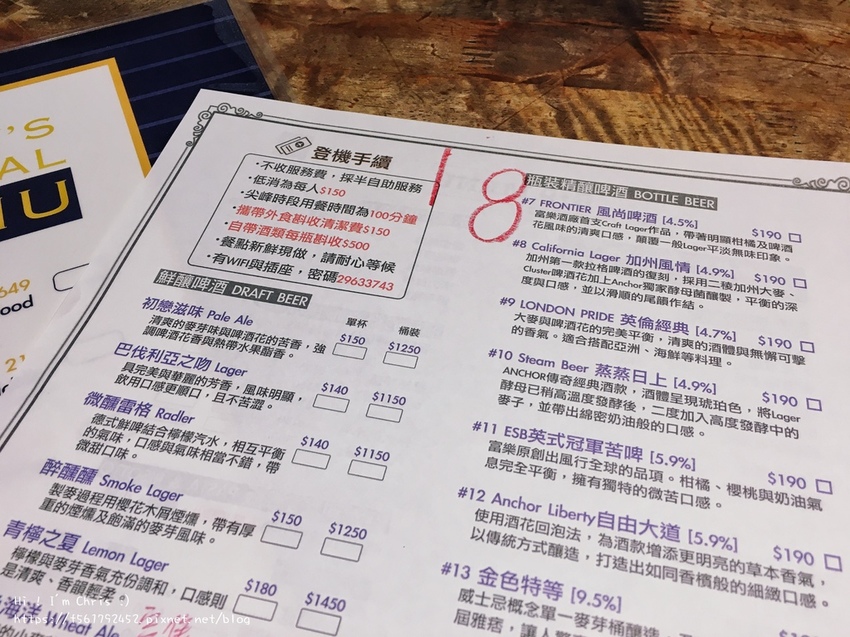 'S
AL
NU
649
ood
2'
登機手續
•不收服務費，採半自助服務
•低消為每人$150
•尖峰時段用餐時間為100分鐘
•攜帶外食斟收清潔費$150
•自帶酒類每瓶斟收$500
•餐點新鮮現做，請耐心等候
•有WIFI與插座，密碼29633743
鮮釀啤酒 DRAFT BEER
單杯 桶裝
初戀滋味 Pale Ale
清爽的麥芽味與啤酒花的苦香，強
調啤酒花香與熱帶水果酯香。
$150 $1250
巴伐利亞之吻 Lager
具完美與華麗的芳香，風味明顯，
飲用口感更順口，且不苦澀。
$140 $1150
微醺雷格 Radler
德式鮮啤結合檸檬汽水，相互平衡
的氣味，口感與氣味相當不錯，帶
微甜口味。
$140 $1150
醉醺醺 Smoke Lager
製麥過程用櫻花木屑煙燻，帶有厚
重的煙燻及飽滿的麥芽風味。
$150 $1250
青檸之夏 Lemon Lager
檸檬與麥芽香氣充份調和，口感則
是清爽、香韻輕柔。
$180 $1450
海洋 Wheat Ale
18
瓶裝精釀啤酒 BOTTLE BEER
#7 FRONTIER 風尚啤酒 [4.5%]
富樂酒廠首支Craft Lager作品，帶著明顯柑橘及啤酒
花風味的清爽口感，顛覆一般Lager平淡無味印象。
$190
#8 California Lager 加州風情 [4.9%]
加州第一款拉格啤酒的復刻，採用二稜加州大麥、
Cluster啤酒花加上Anchor獨家酵母菌釀製，平衡的深
度與口感，並以滑順的尾韻作結。
$190
#9 LONDON PRIDE 英倫經典 [4.7%]
大麥與啤酒花的完美平衡，清爽的酒體與無懈可擊
的香氣。適合搭配亞洲、海鮮等料理。
$190
#10 Steam Beer 蒸蒸日上 [4.9%]
ANCHOR傳奇經典酒款，酒體呈現琥珀色，將Lager
酵母已稍高溫度發酵後，二度加入高度發酵中的
麥子，並帶出綿密奶油般的口感。
$190
#11 ESB英式冠軍苦啤 [5.9%]
富樂原創出風行全球的品項。柑橘、櫻桃與奶油氣
息完全平衡，擁有獨特的微苦口感。
$190
#12 Anchor Liberty自由大道 [5.9%]
使用酒花回泡法，為酒款增添更明亮的草本香氣，
以傳統方式釀造，打造出如同香檳般的細緻口感。
$190
#13 金色特等 [9.5%]
威士忌概念單一麥芽桶釀造
屆雅痞，讓人
Hi ! I'm Chris :)
https://i561752452.pixnet.net/blog